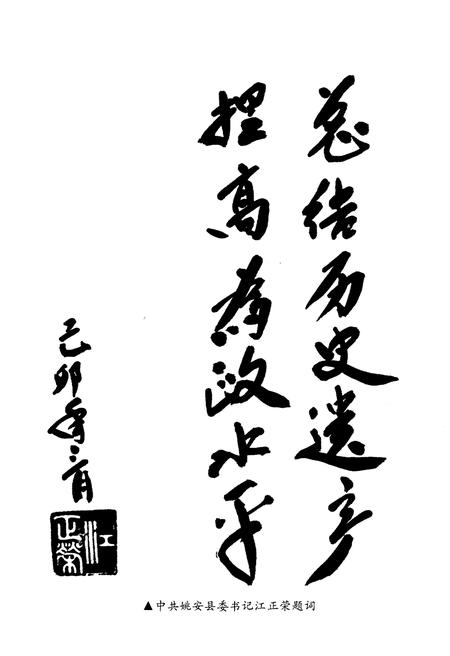 总结历史遗产
提高为政水平
己卯年二月
江正荣
▲中共姚安县委书记江正荣题词